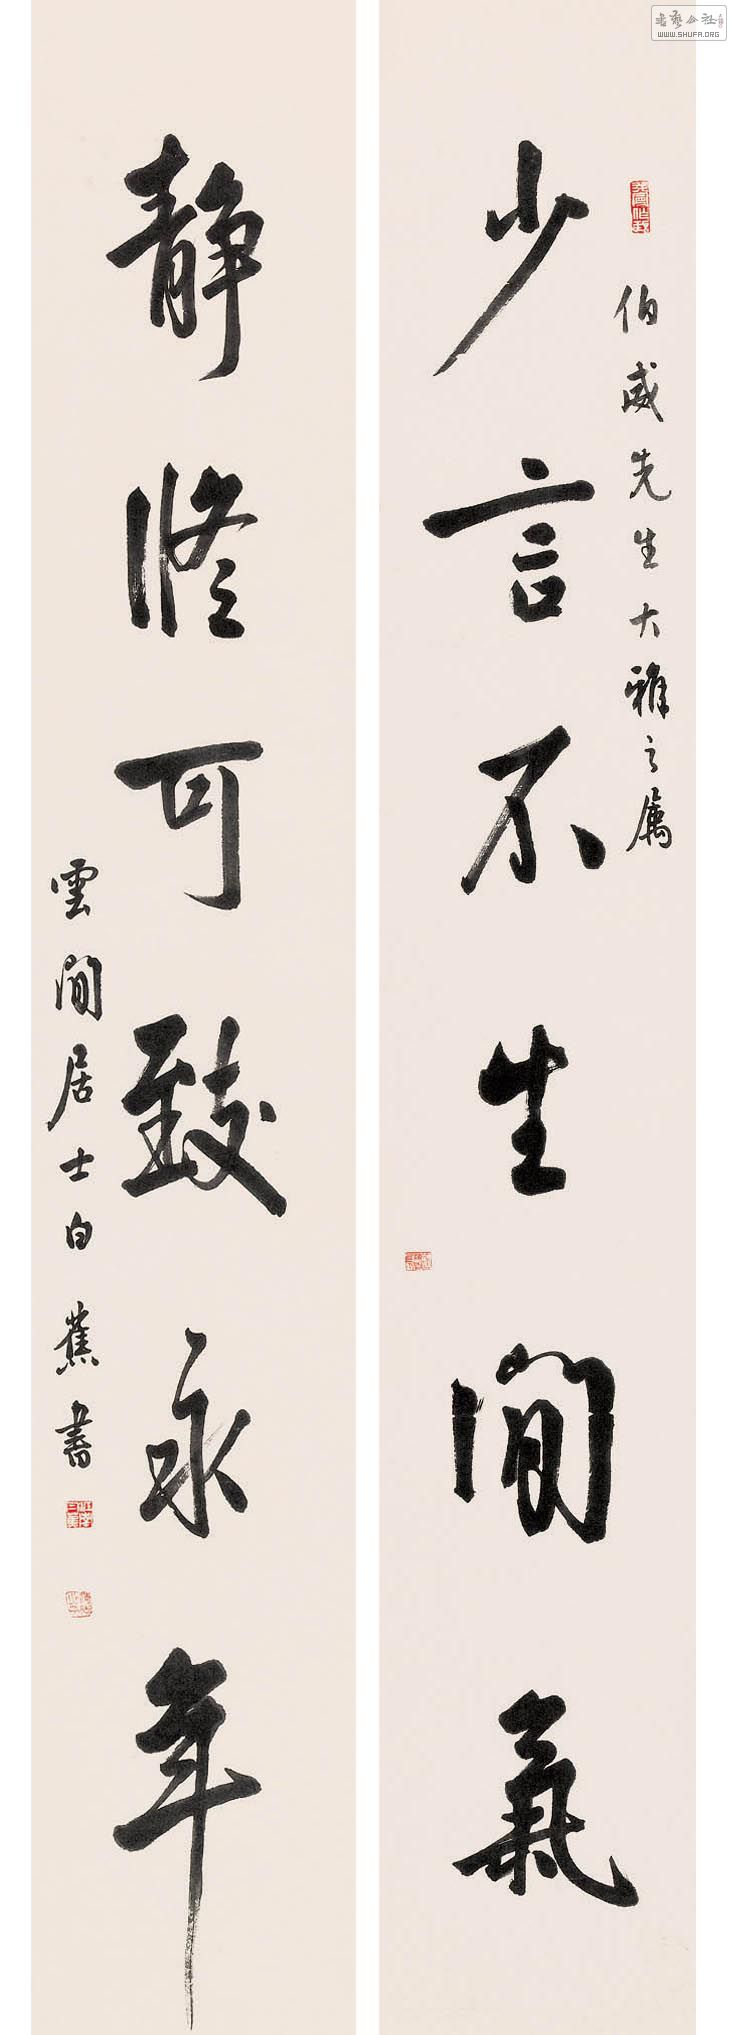 伯威先生大雅之属
少言不生閒氣
静修可致永年
雲間居士白蕉書
書藝公社
WWW.SHUFA.ORG